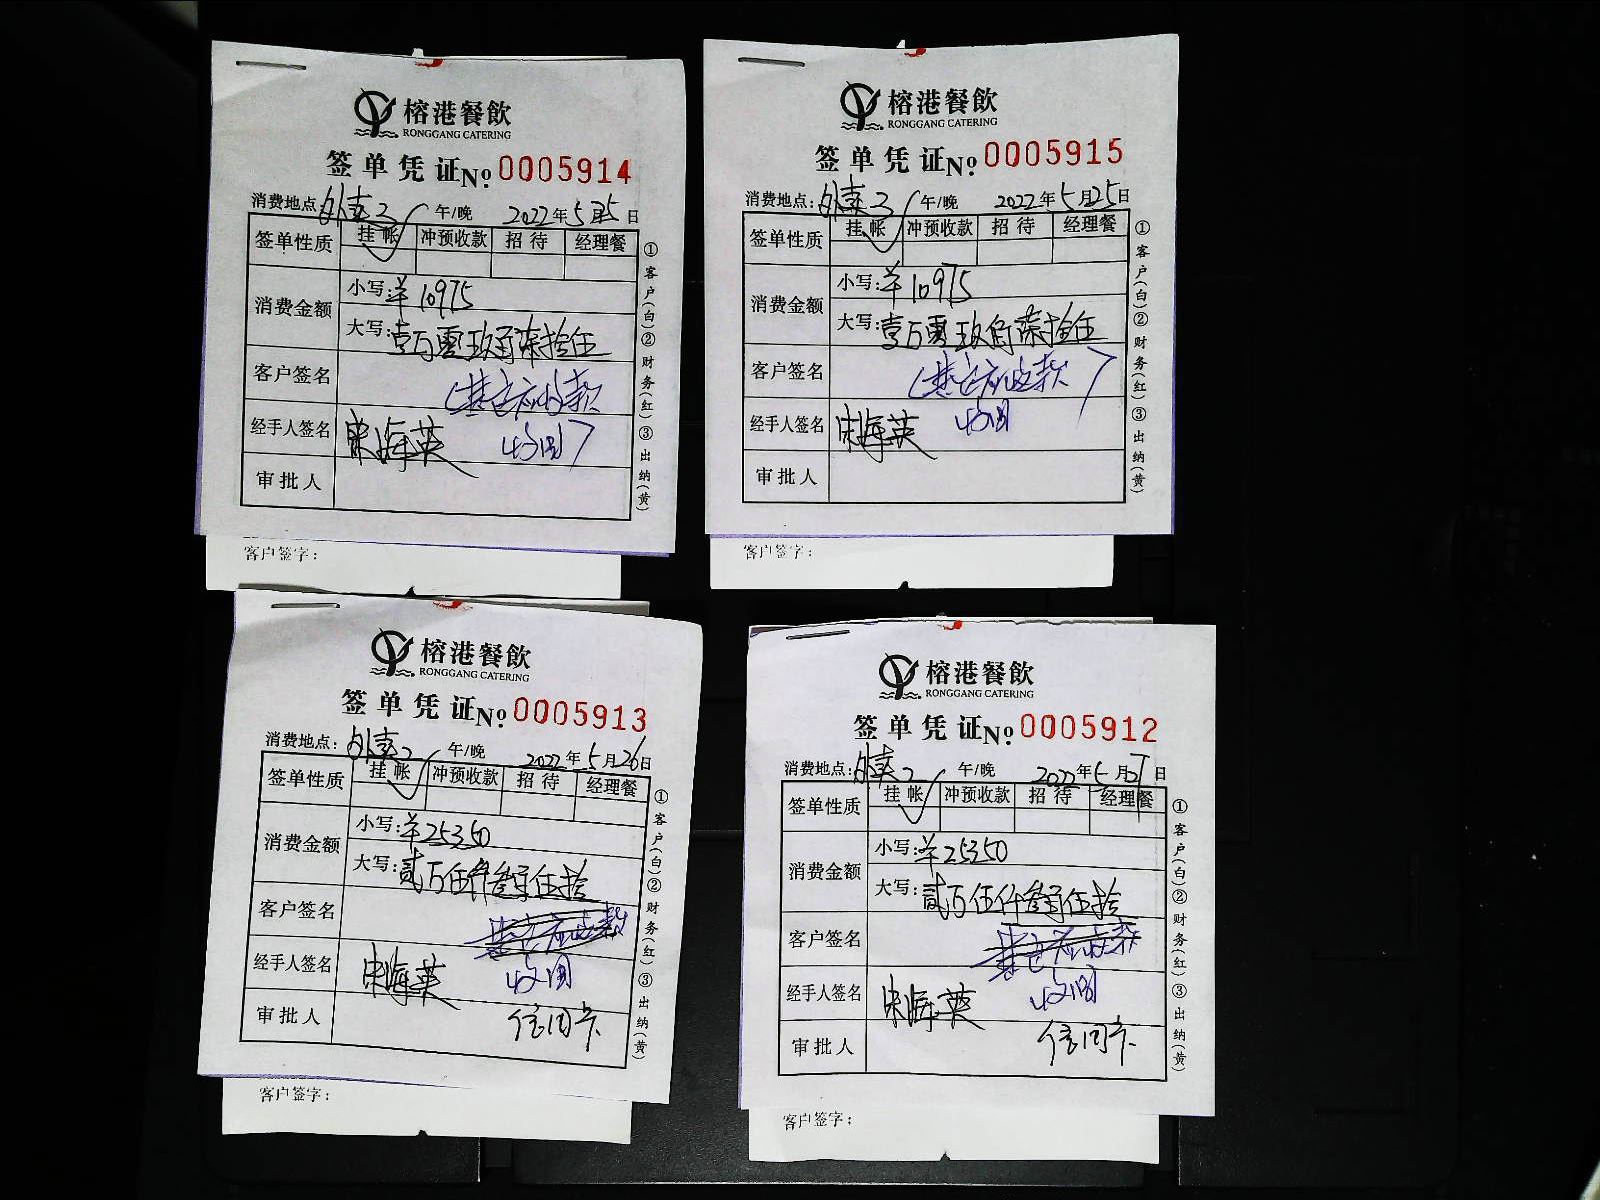 榕港餐飲
RONGGANG CATERING
签单凭证№ 0005914
消费地点: 外卖3 午/晚 2022年5月25日
签单性质 挂帐 冲预收款 招待 经理餐
消费金额 小写: ¥10975
大写: 壹万零玖百柒拾伍
客户签名 应收款
经手人签名 宋海英 收回
审批人
①客户(白)②财务(红)③出纳(黄)
客户签字:
榕港餐飲
RONGGANG CATERING
签单凭证№ 0005915
消费地点: 外卖3 午/晚 2022年5月25日
签单性质 挂帐 冲预收款 招待 经理餐
消费金额 小写: ¥10975
大写: 壹万零玖百柒拾伍
客户签名 应收款
经手人签名 宋海英 收回
审批人
①客户(白)②财务(红)③出纳(黄)
客户签字:
榕港餐飲
RONGGANG CATERING
签单凭证№ 0005913
消费地点: 外卖2 午/晚 2022年5月26日
签单性质 挂帐 冲预收款 招待 经理餐
消费金额 小写: ¥25350
大写: 贰万伍仟叁百伍拾
客户签名 应收款
经手人签名 宋海英 收回
审批人 信用卡
①客户(白)②财务(红)③出纳(黄)
客户签字:
榕港餐飲
RONGGANG CATERING
签单凭证№ 0005912
消费地点: 外卖2 午/晚 2022年5月27日
签单性质 挂帐 冲预收款 招待 经理餐
消费金额 小写: ¥25350
大写: 贰万伍仟叁百伍拾
客户签名 应收款
经手人签名 宋海英 收回
审批人 信用卡
①客户(白)②财务(红)③出纳(黄)
客户签字: